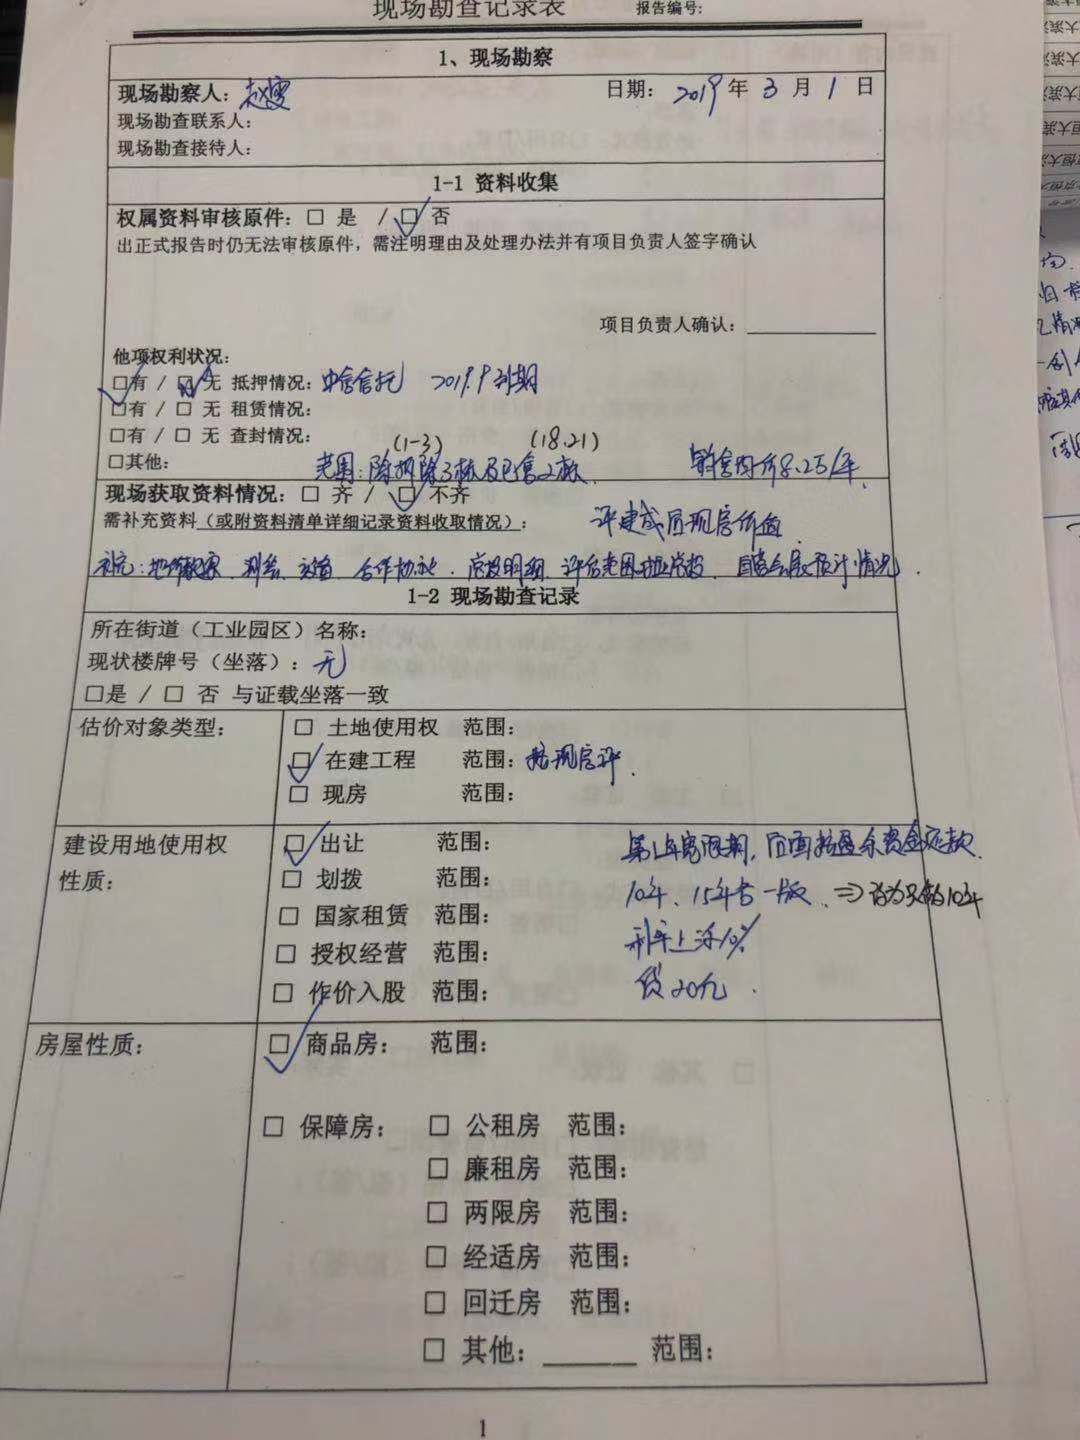 现场勘查记录表 报告编号:
1、现场勘察
现场勘察人: 日期: 2019 年 3 月 1 日
现场勘查联系人:
现场勘查接待人:
1-1 资料收集
权属资料审核原件: □ 是 / □ 否
出正式报告时仍无法审核原件，需注明理由及处理办法并有项目负责人签字确认
项目负责人确认:
他项权利状况:
□有 / □ 无 抵押情况: 中信信托 2019.9到期
□有 / □ 无 租赁情况:
□有 / □ 无 查封情况:
(1-3) (18.21)
□其他: 范围: 除拆除3栋及已售2栋
现场获取资料情况: □ 齐 / □ 不齐
需补充资料（或附资料清单详细记录资料收取情况）: 评建成后现房价值
补充: 合作协议
1-2 现场勘查记录
所在街道（工业园区）名称:
现状楼牌号（坐落）: 无
□是 / □ 否 与证载坐落一致
估价对象类型: □ 土地使用权 范围:
□ 在建工程 范围: 按现房评.
□ 现房 范围:
建设用地使用权 □ 出让 范围:
性质: □ 划拨 范围: 10年、15年各一版
□ 国家租赁 范围:
□ 授权经营 范围: 利率上浮10%
□ 作价入股 范围: 贷20亿.
房屋性质: □ 商品房: 范围:
□ 保障房: □ 公租房 范围:
□ 廉租房 范围:
□ 两限房 范围:
□ 经适房 范围:
□ 回迁房 范围:
□ 其他: 范围:
1